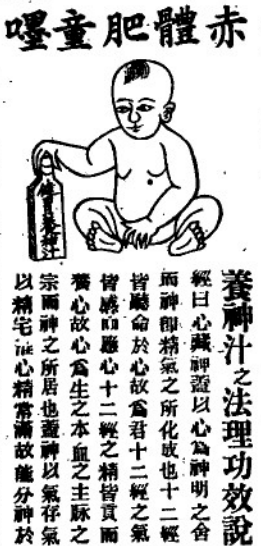 赤體肥童嘜
養神汁
養神汁之法理功效說
經曰心藏神蓋以心為神明之舍
而神即精氣之所化成也十二經
皆聽命於心故為君十二經之氣
皆感而應心十二經之精皆貢而
養心故心為生之本血之主脉之
宗而神之所居也蓋神以氣存氣
以精宅惟心精常滿故能分神於